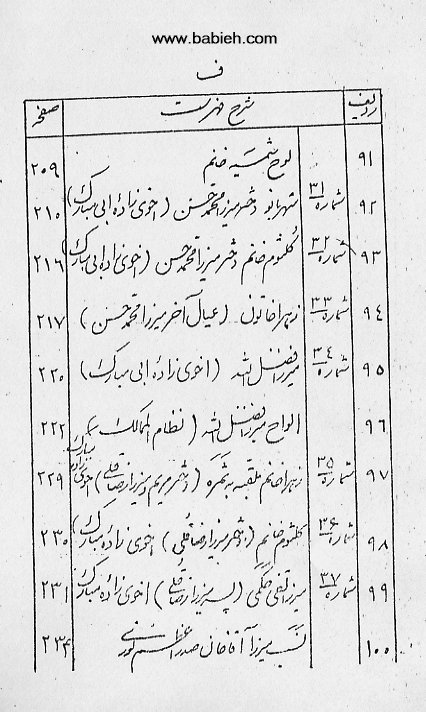 www.babieh.com
ف
ردیف شرح فهرست صفحه
۹۱ لوح شمسیه خانم ۲۰۹
۹۲ شماره ۳۱ شهربانو دختر میرزا محمد حسن (اخوی زادهٔ ابی مبارک) ۲۱۰
۹۳ شماره ۳۲ کلثوم خانم دختر میرزا محمد حسن (اخوی زادهٔ ابی مبارک) ۲۱۶
۹٤ شماره ۳۳ زهرا خاتون (عیال آخر میرزا محمد حسن) ۲۱۷
۹۵ شماره ۳٤ میرزا فضل الله (اخوی زادهٔ ابی مبارک) ۲۲۰
۹۶ الواح میرزا فضل الله (نظام الممالک) ۲۲۲
۹۷ شماره ۳۵ زهرا خانم ملقبه به ثمره (دختر مریم و میرزا رضا قلی) اخوی زاده مبارک ۲۲۹
۹۸ شماره ۳۶ کلثوم خانم (دختر میرزا رضا قلی) اخوی زادهٔ مبارک ۲۳۰
۹۹ شماره ۳۷ میرزا تقی حکمی (پسر میرزا رضا قلی) اخوی زادهٔ مبارک ۲۳۱
۱۰۰ نسب میرزا آقا خان صدر اعظم نوری ۲۳۴